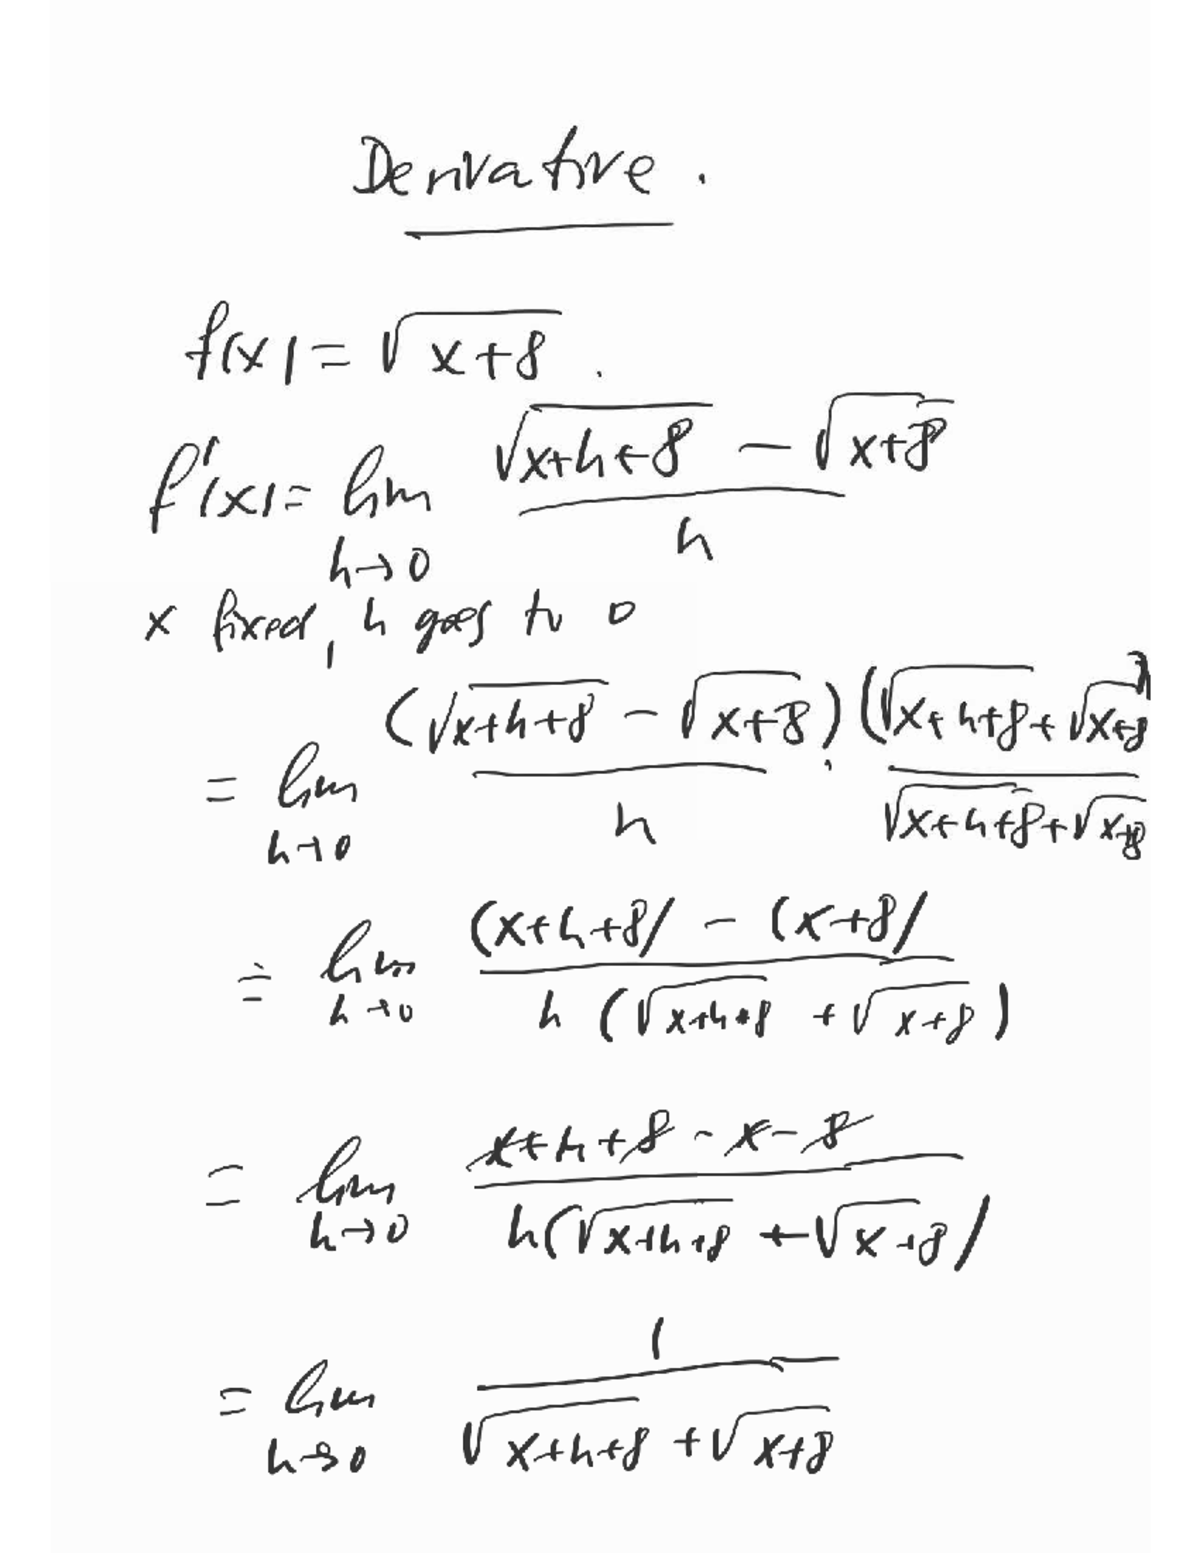 Derivative.
f(x) = √(x+8) .
f'(x) = lim h→0 (√(x+h+8) − √(x+8)) / h
x fixed, h goes to 0
= lim h→0 (√(x+h+8) − √(x+8)) / h · (√(x+h+8) + √(x+8)) / (√(x+h+8) + √(x+8))
= lim h→0 ((x+h+8) − (x+8)) / (h (√(x+h+8) + √(x+8)))
= lim h→0 (x+h+8 − x − 8) / (h(√(x+h+8) + √(x+8)))
= lim h→0 1 / (√(x+h+8) + √(x+8))